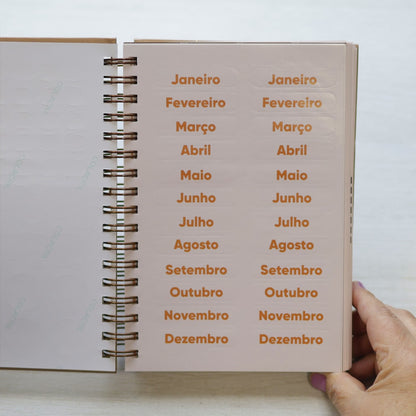 Janeiro Janeiro
Fevereiro Fevereiro
Março Março
Abril Abril
Maio Maio
Junho Junho
Julho Julho
Agosto Agosto
Setembro Setembro
Outubro Outubro
Novembro Novembro
Dezembro Dezembro